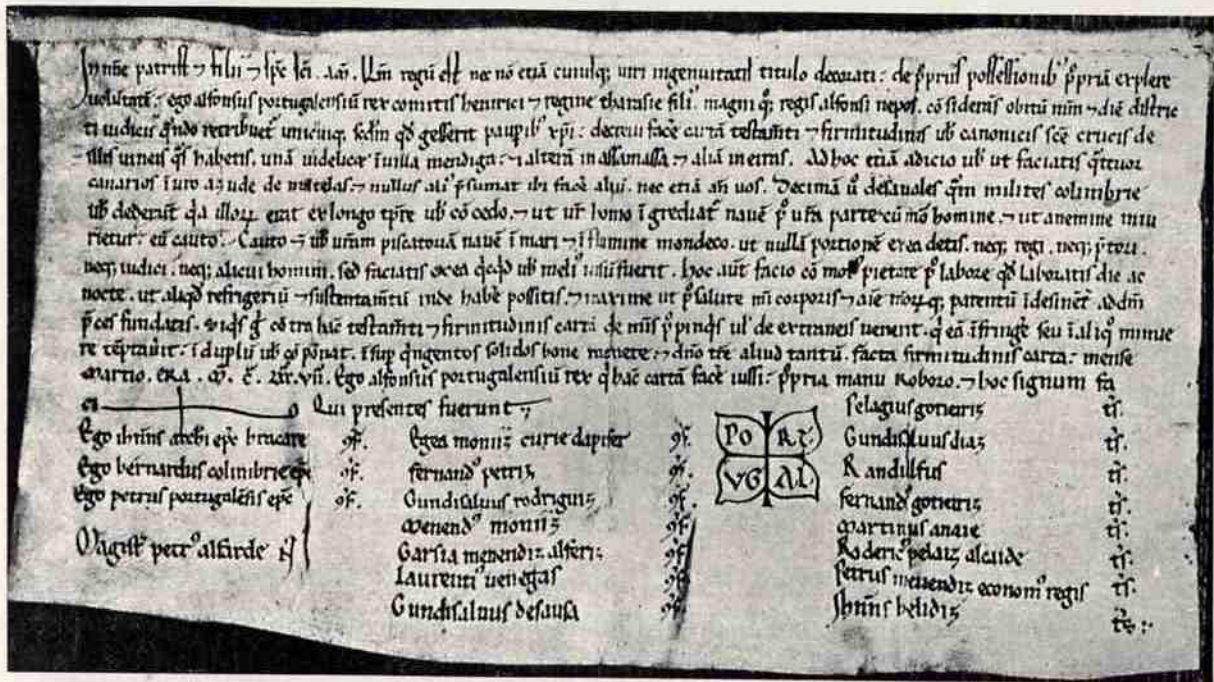 In nñe patris ⁊ filii ⁊ sp̄s sc̄i. am̄. Q̄m regiū est nec nō etiā cuiusq; uiri ingenuitatis titulo decorati: de p̄priis possessionib' p̄priā explere
uolūtatē: ego alfonsus portugalensiū rex comitis henrici ⁊ regine tharasie fili' magni q̄; regis alfonsi nepos. cōsiderans obitū meū ⁊ diē distric
ti iudicii q̄ndo retribuet unicuiq; sc̄dm q̄d gesserit paupib' xp̄i: decreui facē cartā testam̄ti ⁊ firmitudinis uob̄ canonicis sc̄e crucis de
illis uineis q̄s habetis. unā uidelicet ī uilla mendiga: ⁊ alterā in assamassa: ⁊ aliā in eiras. Ad hoc etiā adicio uob̄ ut faciatis q̄tuor
canarios ī uro azude de mistelas: ⁊ nullus ali' p̄sumat ibi facē alui. nec etiā an̄ uos. Decimā ū de sauales q̄m milites colimbrie
uob̄ dederūt q̄a illoꝝ erat ex longo tp̄re uob̄ cōcedo. ⁊ ut ur̄ homo īgrediat' nauē p̄ ur̄a parte cū mō homine. ⁊ ut a nemine iniu
rietur: eū cauto. Cauto ⁊ uob̄ ur̄am piscatoriā nauē ī mari ⁊ ī flumine mondeco. ut nullā portionē ex ea detis. neq; regi. neq; p̄tori.
neq; iudici. neq; alicui homini. sed faciatis ex ea q̄cq̄d uob̄ meli' uisū fuerit. hoc aut̄ facio cō mot' pietate p̄ labore q̄d laboratis die ac
nocte. ut aliq̄d refrigeriū ⁊ sustentam̄tū inde habē possitis. ⁊ maxime ut p̄ salute mei corporis ⁊ aīe meoꝝq; parentū īdesinēt' ad dm̄
p̄ces fundatis. Siq̄s g̊ cōtra hāc testam̄ti ⁊ firmitudinis cartā de meis p̄pinq̄s ul' de extraneis uenerit. q̄ eā īfringē seu ī aliq̊ minue
re tēptauit: ī duplū uob̄ cōponat. īsup q̄ngentos solidos bone monete: ⁊ dño tr̄e aliud tantū. facta firmitudinis carta: mense
Martio. ERA. M̄. C̄. Lxxx. vii. Ego alfonsus portugalensiū rex q̄ hāc cartā facē iussi: p̄pria manu Roboro. ⁊ hoc signum fa
cio Qui presentes fuerunt
Ego ihn̄ns archi ep̄c bracare 9f.
Ego bernardus colimbrie ep̄c 9f.
Ego petrus portugalēsis ep̄c 9f.
Magist' petr' alfarde
Egea moniz curie dapifer 9f.
fernand' petriz 9f.
Gundisaluus rodriguiz 9f.
Menend' moniz 9f
Garsia menendiz alferiz 9f.
Laurenti' uenegas 9f.
Gundisaluus de sausa 9f.
PO RT
VG AL
Pelagius goterriz t̄s.
Gundisaluus diaz t̄s.
Randulfus t̄s.
fernand' goterriz t̄s.
Martinus anaie t̄s.
Roderic' pelaiz alcaide t̄s.
Petrus menendiz econom' regis t̄s.
Ihn̄ns belidiz t̄s.